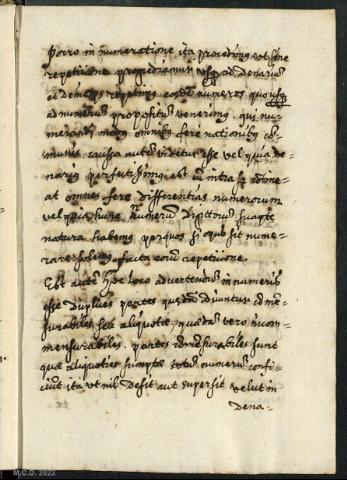 Porro in numeratione ita procedimus ut sine
repetitione progrediamur usq ad Denarium
et deinceps repetimus eosdem numeros quousq
ad numerum propositum venerimus. qui nu-
merandi mos omnibus fere nationibus co-
munis. caussa autem videtur esse vel quia de-
narius perfectissimus est cum intra se contine-
at omnes fere differentias numerorum
vel quia hunc numerum Digitorum suapte
natura habemus per quos si opus sit nume-
rare solemus facta eorum repetitione.
Est autem hoc loco advertendum in numeris
esse Duplices partes quaedam Dicuntur comme-
surabiles seu aliquotae quaedam vero incom-
mensurabiles. partes commesurabiles sunt
quae aliquoties sumptae totum numerum confi-
ciunt ita ut nil Desit aut supersit velut in
Dena-
M.C.D. 2022